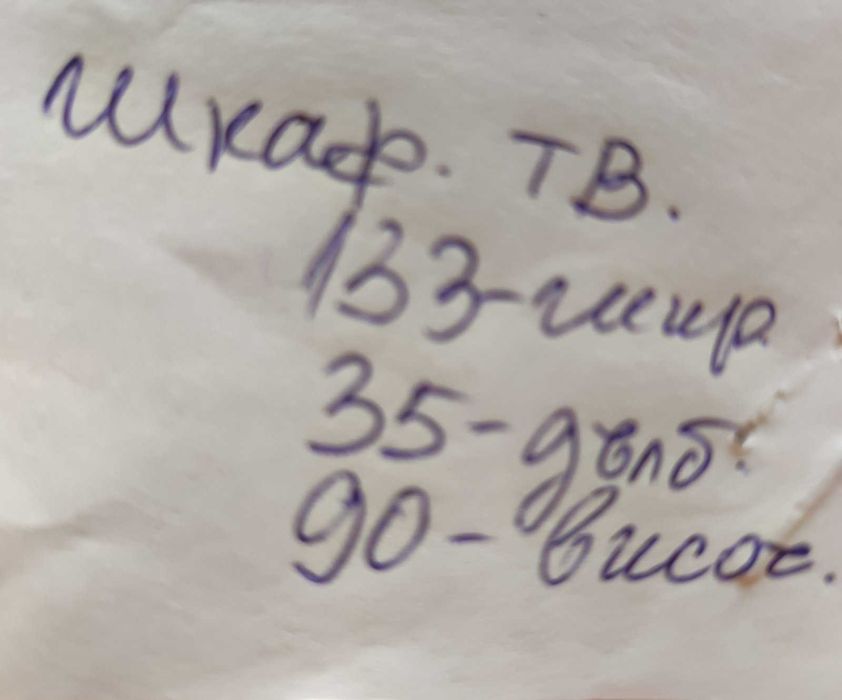 Шкаф. ТВ.
133-шир
35-дълб.
90-висос.